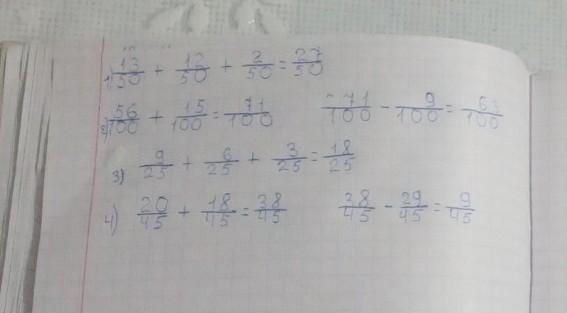 1) 13/50 + 12/50 + 2/50 = 27/50
2) 56/100 + 15/100 = 71/100 71/100 - 9/100 = 63/100
3) 9/25 + 6/25 + 3/25 = 18/25
4) 20/45 + 18/45 = 38/45 38/45 - 29/45 = 9/45